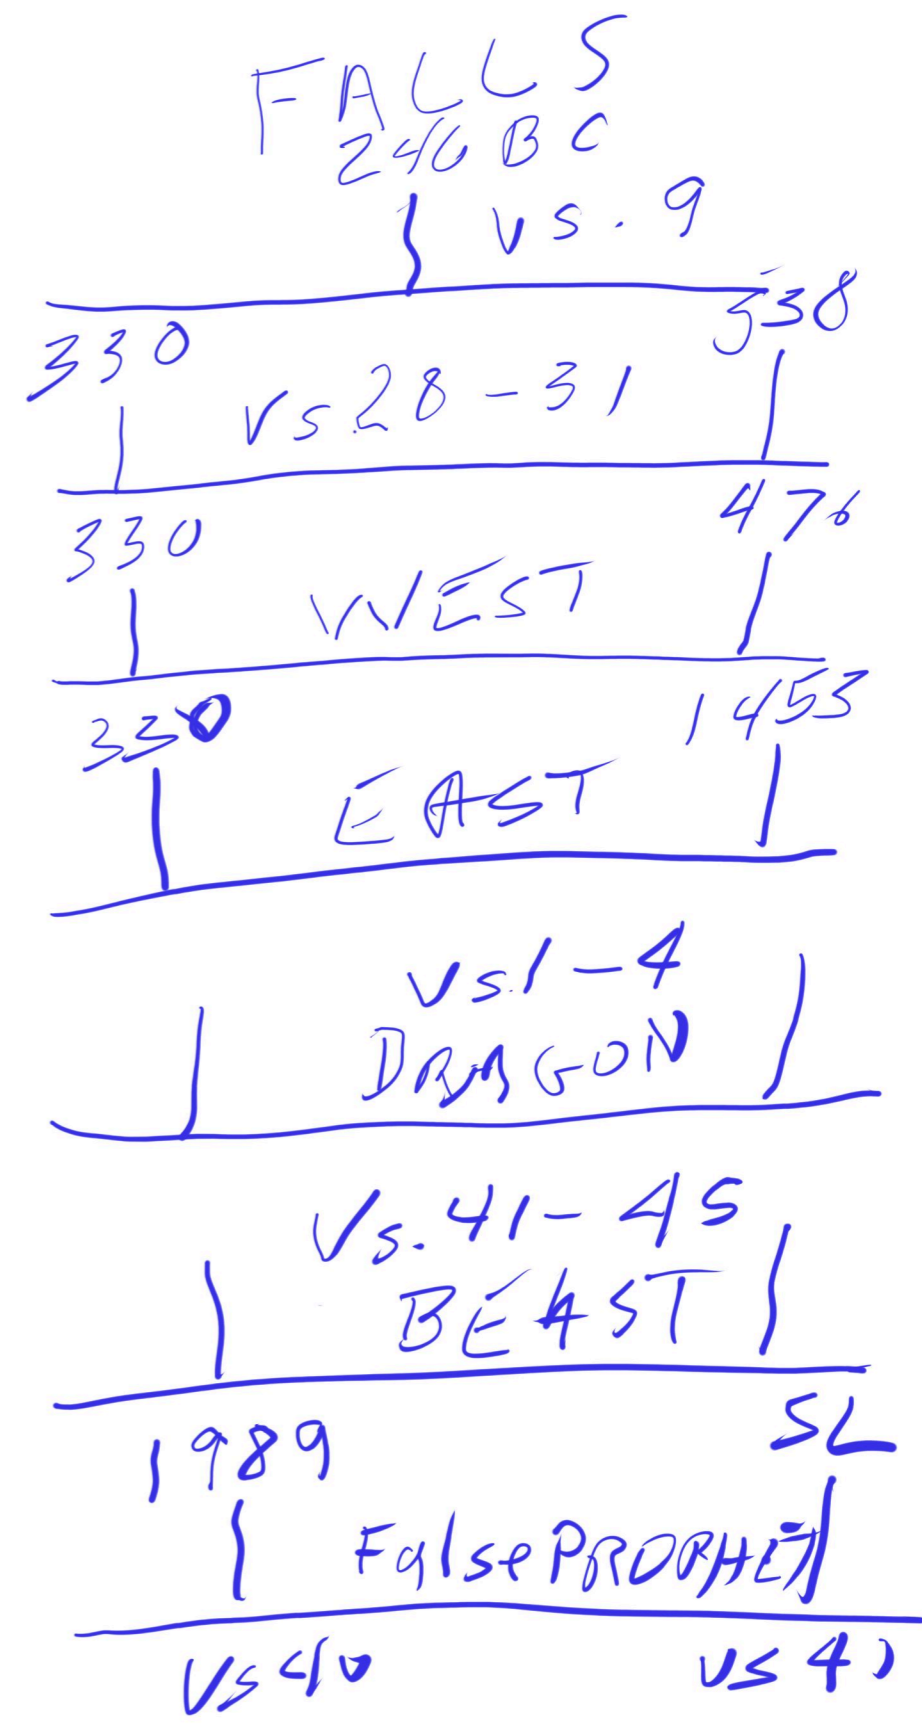 FALLS
246 BC
vs. 9
330 538
Vs 28-31
330 476
WEST
330 1453
EAST
Vs. 1-4
DRAGON
Vs. 41-45
BEAST
1989 SL
False PROPHET
Vs 40 vs 41